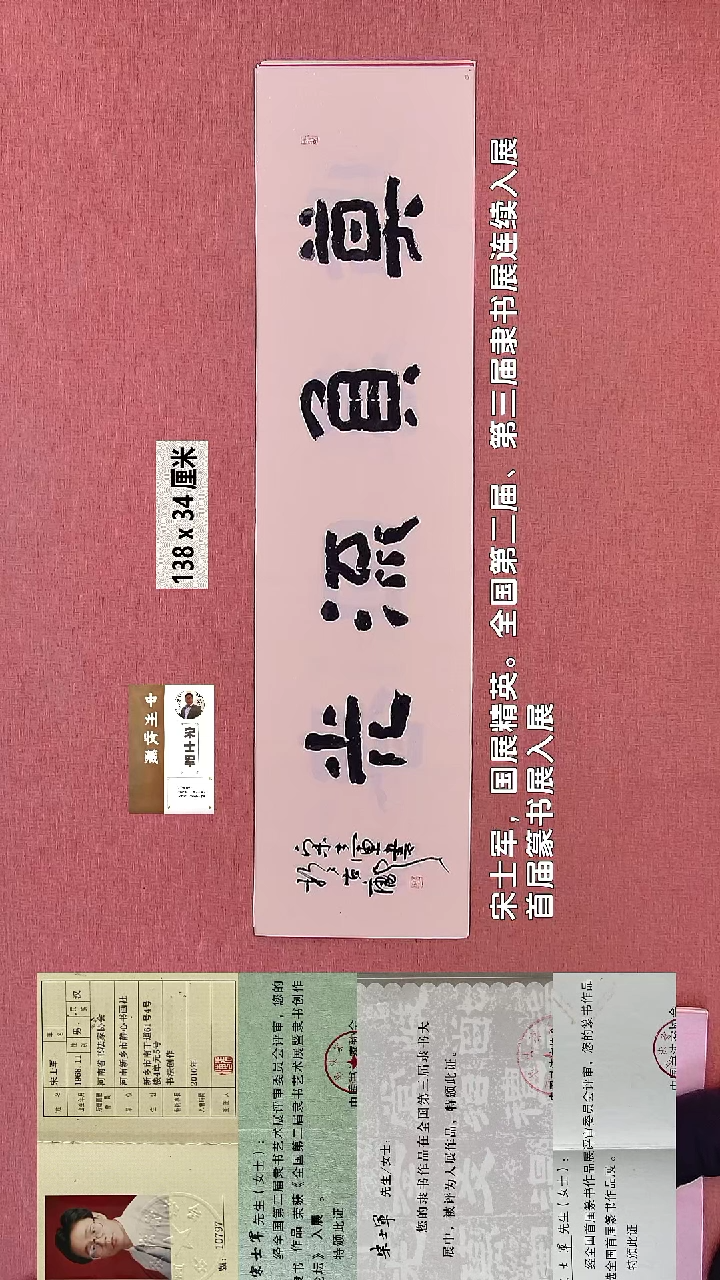 138 x 34 厘米
莫負流光
宋士軍書
宋士军，国展精英。全国第二届、第三届隶书展连续入展
首届篆书展入展
宋士军
1968.11
男
汉
河南省书法家协会
河南新乡市静心书画社
书法创作
2010年
10797
宋士军 先生（女士）：
经全国第二届隶书艺术展评审委员会评审，您的
书作品荣获《全国第二届隶书艺术展暨隶书创作
论坛》入展。
特颁此证
宋士军 先生/女士：
您的隶书作品在全国第三届隶书大
展中，被评为入展作品，特颁此证。
士军 先生（女士）：
经全国首届篆书作品展评审委员会评审，您的篆书作品
全国首届篆书作品展。
特颁此证